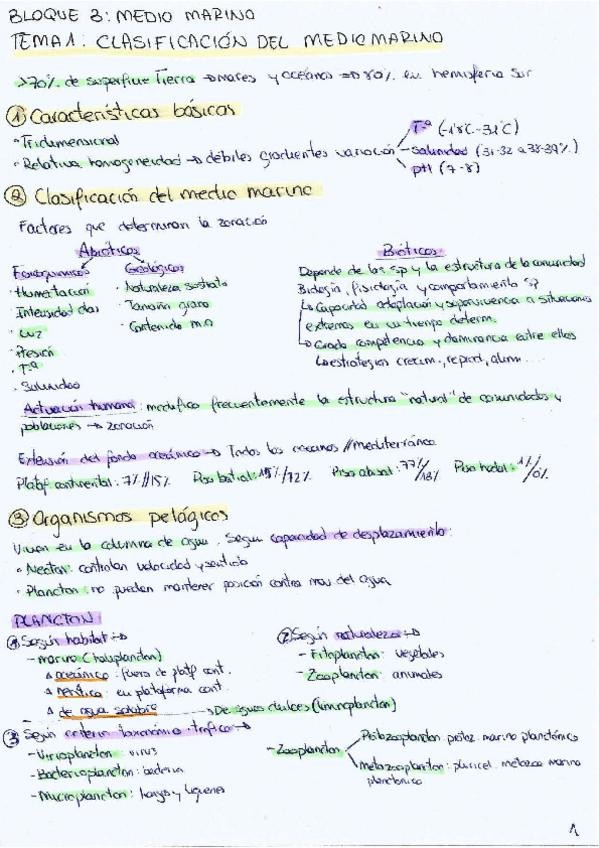 BLOQUE 3: MEDIO MARINO
TEMA 1: CLASIFICACIÓN DEL MEDIO MARINO
>70% de superficie Tierra → mares y océanos → 80% en hemisferio Sur
① Características básicas
· Tridimensional
· Relativa homogeneidad → débiles gradientes variación
Tª (-1'8°C-32°C)
Salinidad (31-32 a 38-39%.)
pH (7-8)
② Clasificación del medio marino
Factores que determinan la zonación
Abióticos
Bióticos
Fisicoquímicos
Geológicos
· Humectación
· Intensidad olas
· Luz
· Presión
· Tª
· Salinidad
· Naturaleza sustrato
· Tamaño grano
· Contenido m.o
Depende de las sp y la estructura de la comunidad
Biología, fisiología y comportamiento sp
↳ Capacidad adaptación y supervivencia a situaciones
extremas en un tiempo determ.
↳ Grado competencia y dominancia entre ellos
↳ estrategias crecim., reprod, alim....
Actuación humana: modifica frecuentemente la estructura "natural" de comunidades y
poblaciones → zonación
Extensión del fondo oceánico → Todos los océanos // mediterráneo
Plataf continental: 7% // 15%
Piso batial: 15% / 72%
Piso abisal: 77% // 13%
Piso hadal: 1% / 0%
③ Organismos pelágicos
Viven en la columna de agua. Según capacidad de desplazamiento:
· Necton: controlan velocidad y sentido
· Plancton: no pueden mantener posición contra mov del agua
PLANCTON:
① Según hábitat →
- marino (haloplancton)
△ oceánico: fuera de plataf cont.
△ nerítico: en plataforma cont.
△ de agua salobre
- De aguas dulces (limnoplancton)
② Según naturaleza →
- Fitoplancton: vegetales
- Zooplancton: animales
③ Según criterio taxonómico-trófico →
- Virioplancton: virus
- Bacterioplancton: bacterias
- Mycoplancton: hongos y líquenes
- Zooplancton
Protozooplancton: protoz. marino planctónico
Metazooplancton: pluricel. metazoo marino
planctónico
1